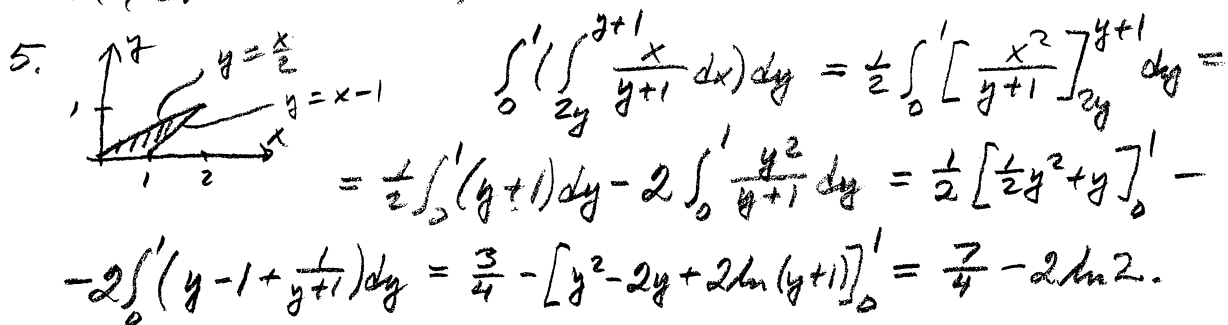 5. y y = x/2 y = x-1 x 1 1 2 ∫₀¹(∫_{2y}^{y+1} x/(y+1) dx)dy = 1/2 ∫₀¹[x²/(y+1)]_{2y}^{y+1} dy =
= 1/2 ∫₀¹(y+1)dy - 2∫₀¹ y²/(y+1) dy = 1/2 [1/2 y²+y]₀¹ -
-2∫₀¹(y-1+1/(y+1))dy = 3/4 - [y²-2y+2ln(y+1)]₀¹ = 7/4 - 2ln2.